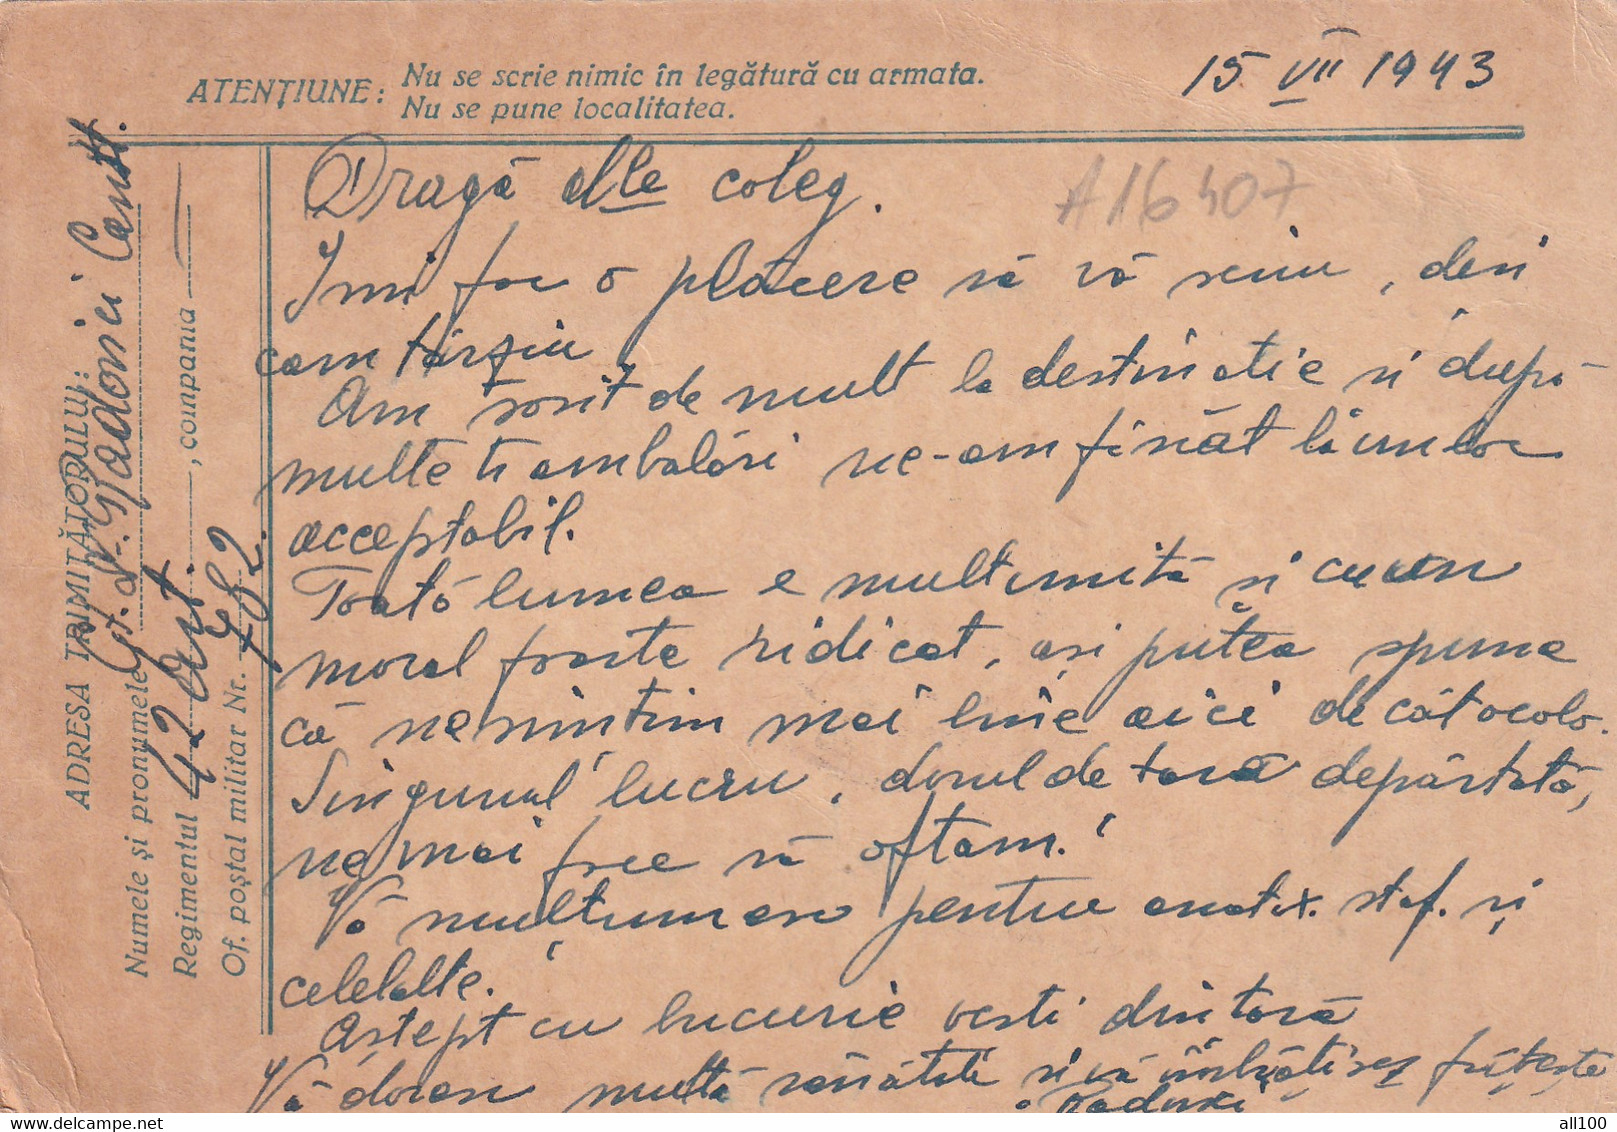 ATENȚIUNE: Nu se scrie nimic în legătură cu armata.
Nu se pune localitatea.
15 VII 1943
A16407
Dragă coleg.
Imi fac o plăcere să vă scriu, deși
cam târziu
Am sosit de mult la destinație și după
multe trambalări ne-am fixat la un loc
acceptabil.
Toată lumea e multumită și cu un
moral foarte ridicat, ași putea spune
că ne simtim mai bine aici decât acolo.
Singurul lucru, dorul de tară depărtată,
ne mai face să oftam!
Vă multumesc pentru și
celelalte.
Aștept cu bucurie vesti din tară
Vă doresc multă sănătate și vă îmbrătisez frățește
ADRESA TRIMIȚĂTORULUI:
Numele și pronumele
Regimentul 42 Art. , compania —
Of. poștal militar Nr. 782.
all100